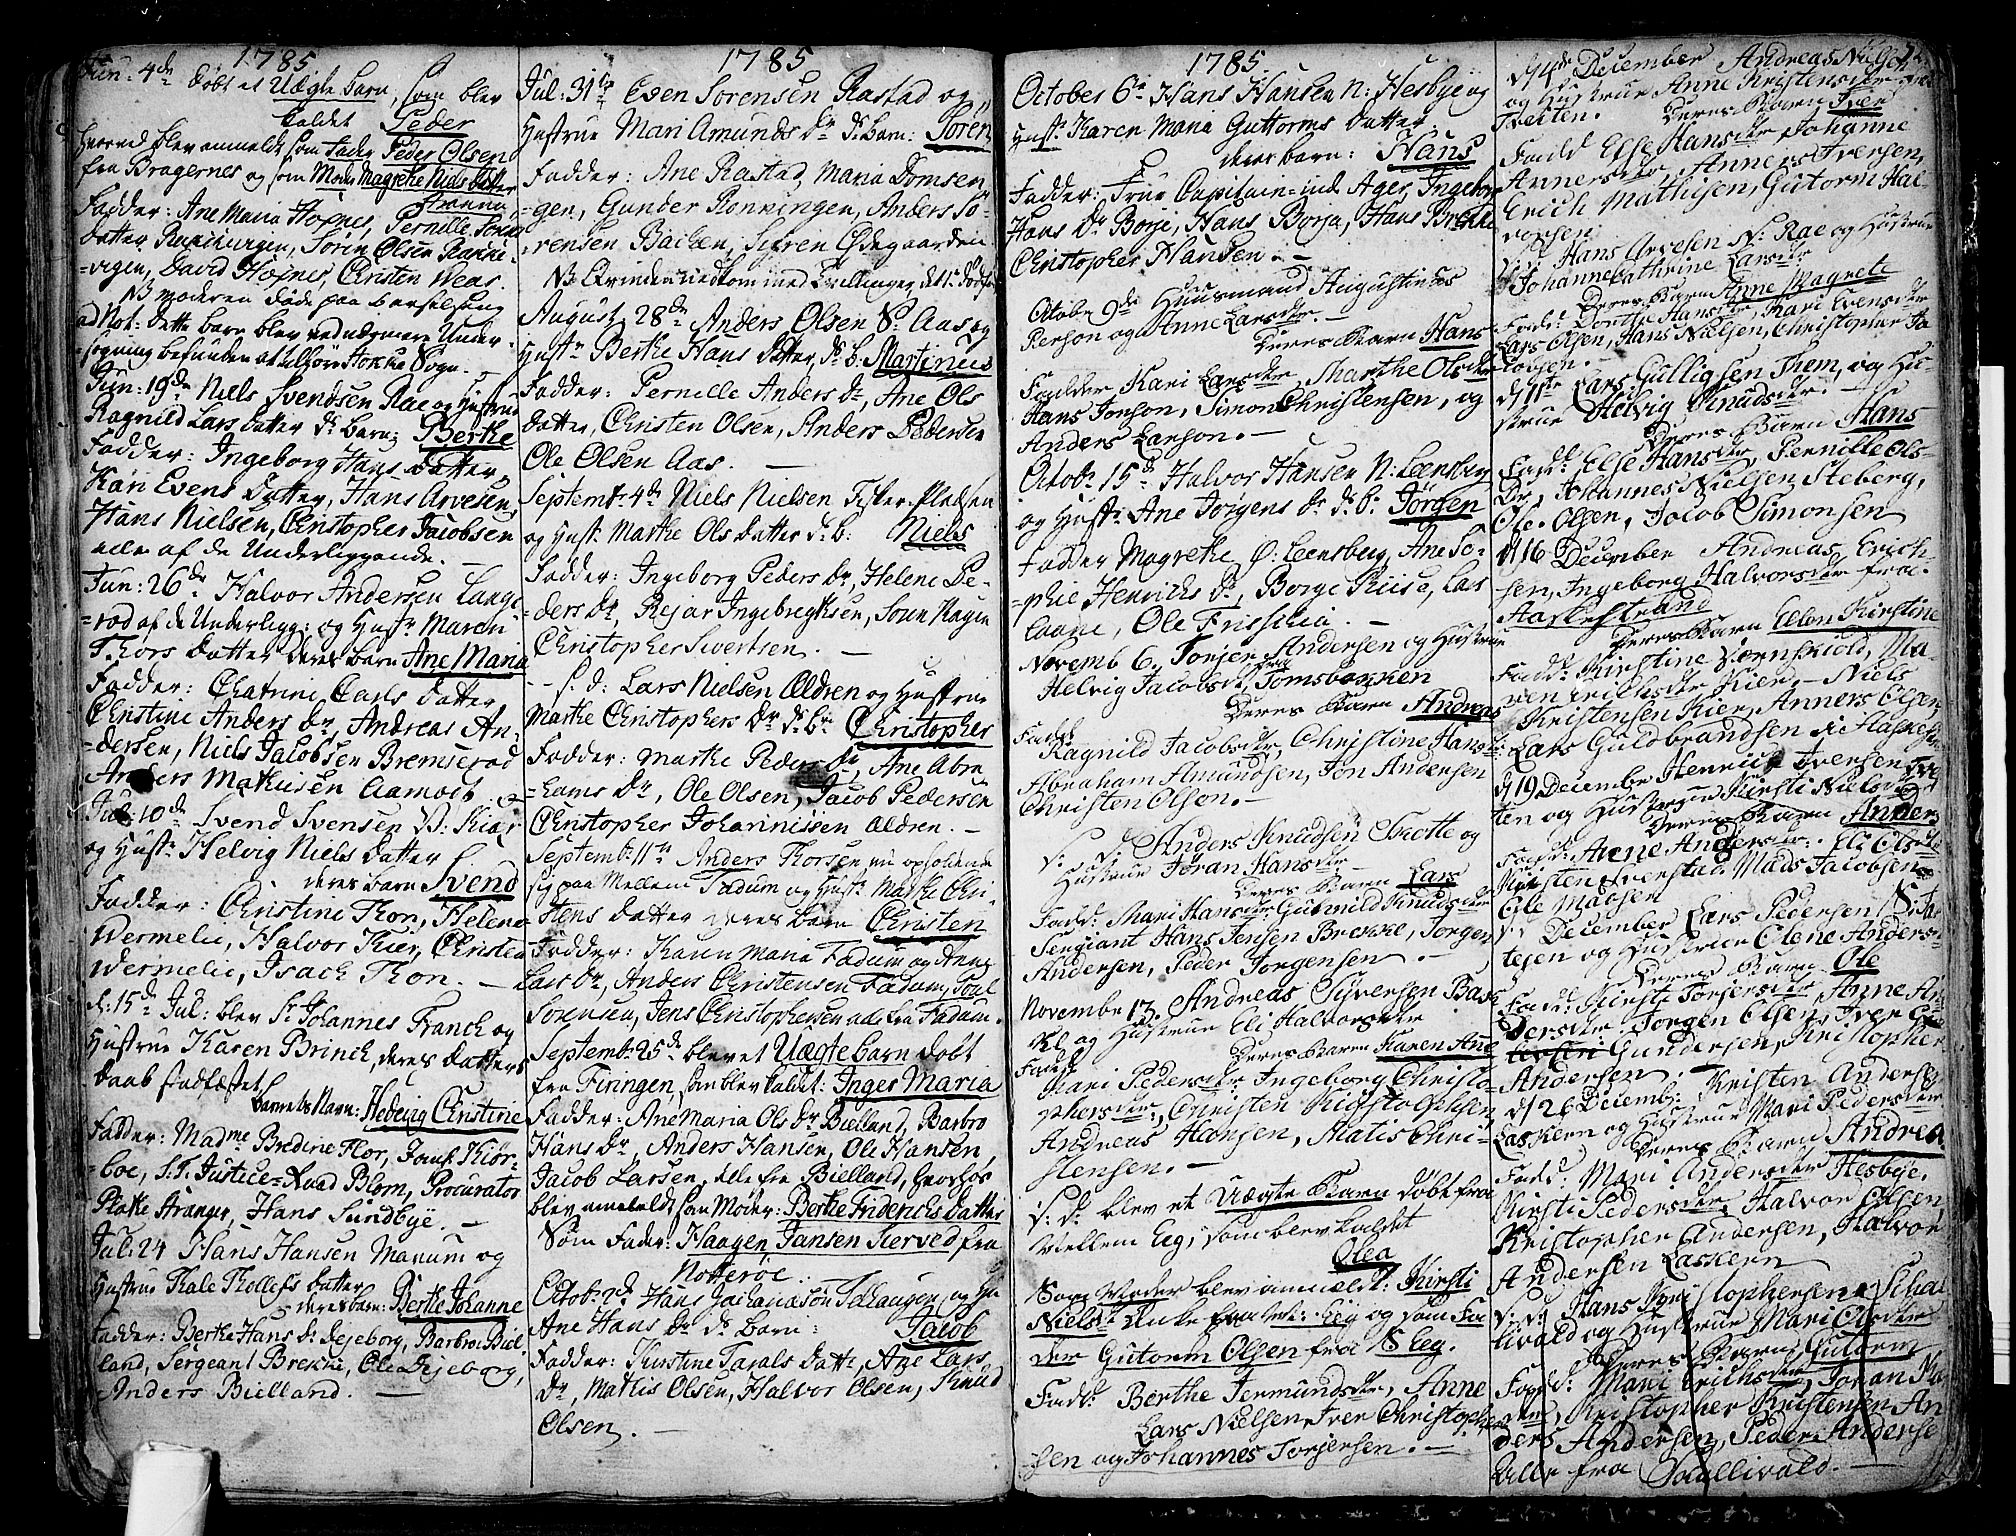 1785
Jun: 4de døbt et Uægte barn, som blev
kaldet Peder
herved blev anmeldt som Fader Peder Olsen
fra Bragernes og som Moder Magrethe Niels datter
Fadder: Ane Maria Hopnes, Pernille Søren
datter Ramburgen, Søren Olsen
vigen, David Hopnes, Christen Weas.
NB moderen døde paa barselseng
ad Not: dette barn blev ved nærmere Under-
søgning befunden at tilhøre Stokke Sogn.
Jun: 19de Niels Svendsen Rae og Hustrue
Ragnild Lars datter Ds barn: Berthe
Fadder: Ingeborg Hans datter,
Kari Evens datter, Hans Arvesen,
Hans Nielsen, Christopher Jacobsen
alle af de Underliggende.
Jun: 26de Halvor Andersen Lange-
=rød af de Underligg: og Hustr Maren
Thors datter deres barn Ane Maria
Fadder: Chatrine Carls datter
Christine Anders Dr, Andreas An-
=dersen, Niels Jacobsen Bremserød
Anders Mathisen Aamodt
Jul: 10de Svend Svensen N: Kiær
og Hustr Helvig Niels datter
deres barn Svend
Fadder: Christine Thon, Helene
Wermelie, Halvor Kier, Christen
Wermelie, Isach Thon.
d: 15de Jul: blev Sr Johannes Franck og
Hustrue Karen Brinch, deres datters
daab stadfæstet
barnets Navn: Hedevig Christine
Fadder: Madme Bredine Flor, Jomf. Kiør-
=boe, S.T. Justice=Raad Blom, Procurator
Plathe Stranger, Hans Sundbye.
Jul: 24 Hans Hansen Marum og
Hustrue Kale Thollefs datter
deres barn: Berthe Johanne
Fadder: Berthe Hans Dr Dejeborg, Barbroe Biel-
land, Sergeant Brekke, Ole Dejeborg,
Anders Bielland.
1785
Jul: 31te Even Sørensen Rastad og
Hustrue Mari Amunds Dr Ds barn: Søren
Fadder: Ane Rastad, Maria Domsen-
=gen, Gunder Rønningen, Anders Sø-
=rensen Bachen, Sifren Ødegaarden
NB Qvinden nedkom med Tvillinger det 1te dødfød
August 28de Anders Olsen N: Aas og
Hustr Berthe Hans datter, Ds b: Martinus
Fadder: Pernille Anders Dr, Ane Ols
datter, Christen Olsen, Anders Pedersen
Ole Olsen Aas.
Septembr 4de Niels Nielsen Fisker-Pladsen
og Hustr Marthe Ols datter Ds b: Niels
Fadder: Ingeborg Peders Dr, Helene Pe-
ders Dr, Rejar Ingebregtsen, Søren Hagen
Christopher Sivertsen.
S. D: Lars Nielsen Ældren og Hustrue
Marthe Christophers Dr Ds br Christopher
Fadder: Marthe Peders Dr, Ane Abra-
hams Dr, Ole Olsen, Jacob Pedersen
Christopher Johannissen Ældren.
Septembr 11te Anders Thorsen nu opholdende
sig paa Mellem Fadum og Hustr Marthe Chri-
stens datter deres barn Christen
Fadder: Karen Maria Fadum og Anne
Lars Dr, Anders Christensen Fadum, Poul
Sørensen, Jens Christophersen alle fra Fadum.
Septembr 25de blev et Uægte barn døbt
fra Firingen, som blev kaldet: Inger Maria
Fadder: Ane Maria Ols Dr Bielland, Barbro
Hans Dr, Anders Hansen, Ole Hansen,
Jacob Larsen, alle fra Bielland, hvorhos
blev anmeldt som Moder: Berthe Friderichs datter
Som Fader: Haagen Jansen Kerved fra
Nøtterøe.
Octob: 2de Hans Jochumsøn Tolhaugen, og Hu
Ane Hans Dr Ds Barn: Jacob
Fadder: Kirstine Tarals datter, Ane Lars
Dr, Mathis Olsen, Halvor Olsen, Knud
Olsen.
1785
October 6te Hans Hansen N: Hesbye og
Hust: Karen Maria Guttorms datter
deres barn: Hans
Fadder: Frue Capitain=inde Ager, Ingeborg
Hans Dr Borje, Hans Borja, Hans Brekke
Christopher Hansen.
Octobr 9de Huusmand Augustinus
Person og Anne Larsdtr.
Deres Barn Hans
Fadder Kari Larsdtr Marthe Olsdtr
Hans Jonson, Simon Christensen, og
Anders Larson.
Octobr 15de Halvor Hansen N: Leensberg
og Hustr Ane Jørgens Dr Ds b: Jørgen
Fadder Magrethe Ø: Leensberg, Ane So-
=phie Henrichs Dr, Børge Riise, Lars
Laane, Ole Frisselia.
Novemb 6. Torjer Andersen og Hustrue
Helvig Jacobsdr fra Tomsbakken
Deres Barn Andreas
Fadd:
Ragnild Jacobsdtr, Christine Hansdtr
Abraham Amundsen, Jon Andersen
Christen Olson.
S: D: Anders Knudsen Trotte og
Hustrue Jøran Hansdtr
Deres Barn Lars
Fadd: Mari Hansdtr Gunnild Knudsdtr
Sergiant Hans Jensen Brekke, Jørgen
Andersen, Peder Jørgensen.
Novembr 13. Andreas Syversen Bas
og Hustrue Eli Halvorsdtr
Deres Barn Karen And
Fadd:
Mari Pedersdtr, Ingeborg Christo-
phersdtr, Christen Kristophersen
Andreas Hansen, Matis Chri-
stensen.
S: D: blev et Uægte Barn døbt fra
Mellem Eeg, som blev kaldet
Olea
Som Moder blev anmældt: Kirsti
Nielsdr Enke fra M: Eeg og som Fa-
der Gutorm Olsen fra S Eeg.
Fadd: Berthe Jermundsdtr, Anne
Lars Nielsen, Iver Christopher
sen og Johannes Torjersen.
d 4de December Andreas Nielsen
og Hustrue Anne Kristensdtr fra
Tveiten. Deres Barn Iver
Fadd Else Hansdtr Johanne
Annersdtr, Anners Iversen,
Erich Mathisen, Gutorm Hal-
vorsen
S: D: Hans Arvesen N: Rae og Hustrue
Johannecathrine Larsdtr
Deres Barn Anne Magrete
Fadd: Dorthe Hansdtr, Kari Evensdtr
Lars Olsen, Hans Nielsen, Christopher Ja
cobsen.
d 11te Lars Gulligsen Them, og Hu-
strue Helvig Knudsdtr.
Deres Barn Hans
Fadd: Else Hansdtr, Pernille Ols-
Dr, Johannes Nielsen Steberg,
Ole Olsen, Jacob Simonsen
d 16 December Andreas Erich-
sen, Ingeborg Halvorsdtr fra
Aasgestrand
Deres Barn Ellen Kirstine
Fadd: Kirstine Tiørnskiold, Ma-
ren Erichsdtr Kier, Niels
Kristensen Kier, Anners Olsen,
Lars Guldbrandsen
d 19 Decembr Henrich Iversen Tvei
ten og Hustrue Kirsti Nielsdtr
Deres Barn Anders
Fadd: Anne Andersdtr, Eli Olsdtr
Kristen Iverstad, Mads Jacobsen
Ole Madsen
S: D: December Lars Pedersen N:
tejen og Hustrue Olene Anders-
Deres Barn Ole
Fadd: Kirsti Torjersdtr, Anne An-
dersdtr Jørgen Olsen, Iver
Gundersen, Kristopher
Andersen.
d 26 Decemb: Kristen Andersen
Laskern og Hustrue Mari Pedersdtr
Deres Barn Andrea
Fadd: Mari Andersdtr Hesbye,
Kirsti Pedersdtr, Halvor Olsen,
Kristopher Andersen, Halvor
Andersen Laskern
S: D: Hans Kristophersen Schal
livald og Hustrue Mari Olsdtr
Deres Barn Gutorm
Fadd: Mari Erichsdtr, Joran
Kristopher Kristensen An
ders Andersen, Peder Anderse
Alle fra Skallivald.